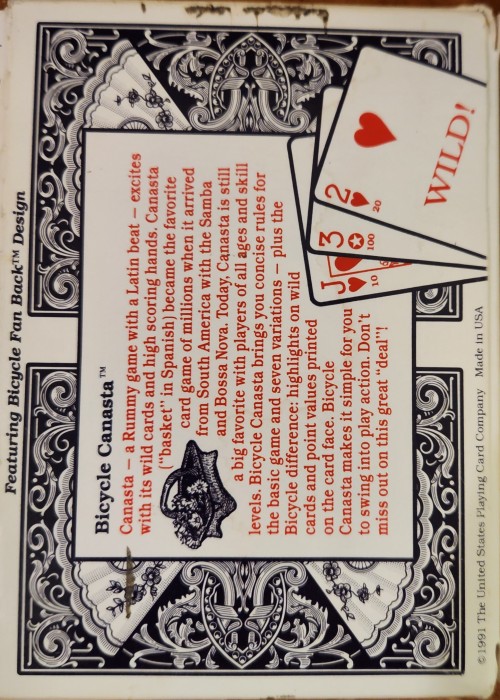 Featuring Bicycle Fan Back™ Design
Bicycle Canasta™
Canasta — a Rummy game with a Latin beat — excites
with its wild cards and high scoring hands. Canasta
("basket" in Spanish) became the favorite
card game of millions when it arrived
from South America with the Samba
and Bossa Nova. Today, Canasta is still
a big favorite with players of all ages and skill
levels. Bicycle Canasta brings you concise rules for
the basic game and seven variations — plus the
Bicycle difference: highlights on wild
cards and point values printed
on the card face. Bicycle
Canasta makes it simple for you
to swing into play action. Don't
miss out on this great 'deal'!
J
10
3
100
2
20
WILD!
©1991 The United States Playing Card Company Made in USA